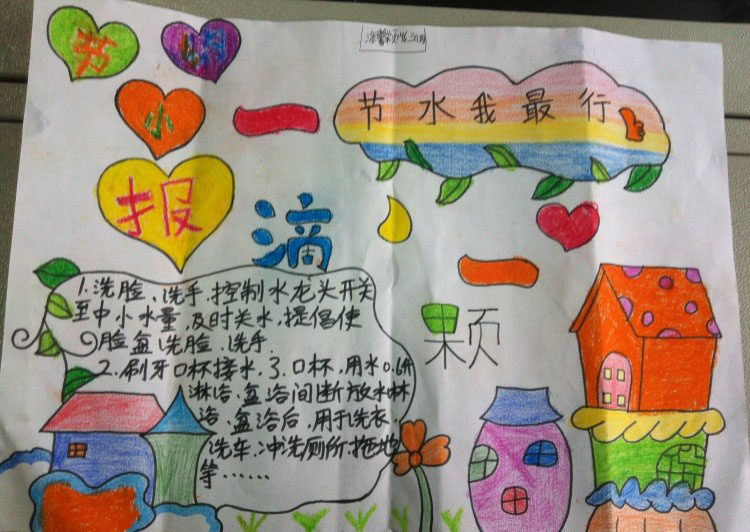 节
小
报
节水我最行
一
滴
一
颗
1.洗脸、洗手.控制水龙头开关
至中小水量,及时关水,提倡使
脸盆洗脸、洗手.
2.刷牙口杯接水.3.口杯,用水
淋浴.盆浴间断放水淋
浴.盆浴后,用于洗衣.
洗车、冲洗厕所.拖地
等……